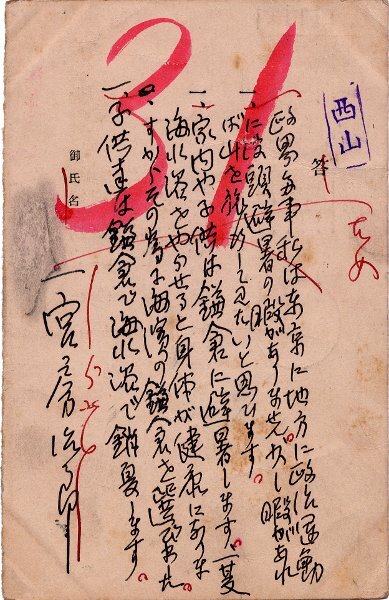 西山
答
31
一、政界多事私は東京に地方に政治運動
に没頭避暑の暇がありません。少し暇があれ
ば山を旅行して見たいと思ひます。
一、家内や子供は鎌倉に避暑します。一夏
海水浴をやらせると身体が健康になりま
すから、その為に海濱の鎌倉を選びました。
一、子供達は鎌倉で海水浴で銷夏します。
御氏名
一宮房治郎